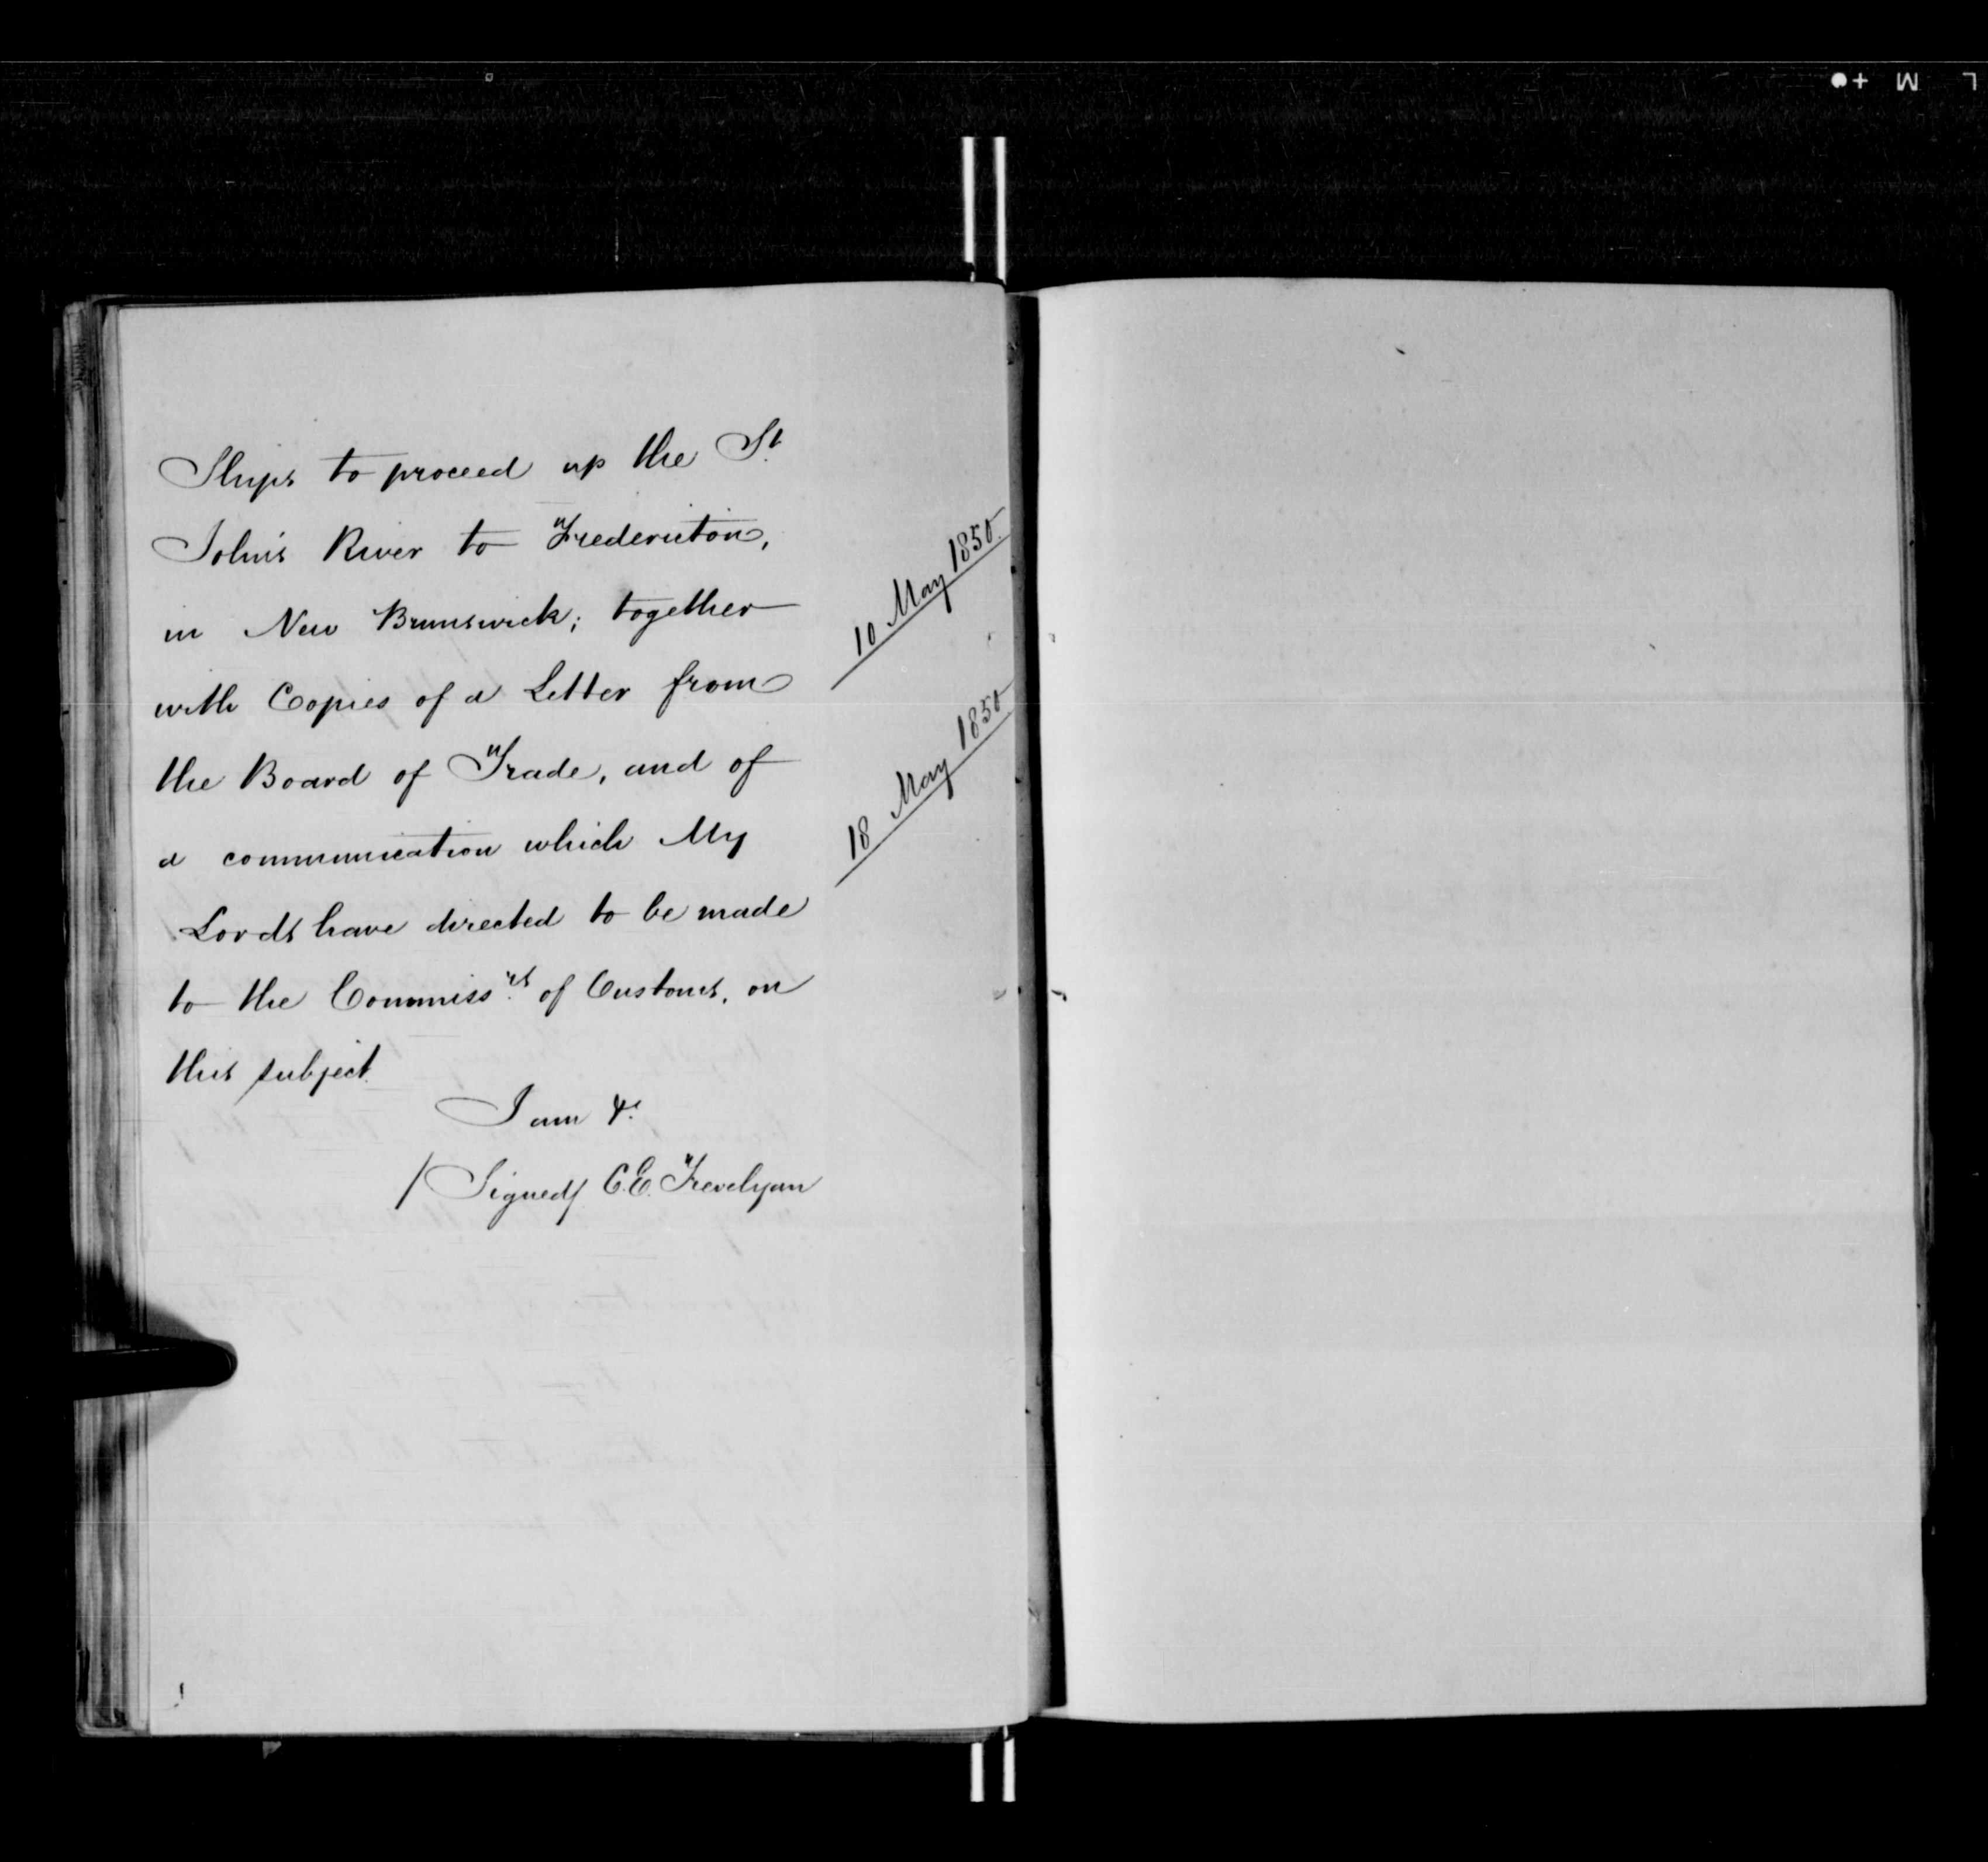 Ships to proceed up the St.
John's River to Fredericton,
in New Brunswick; together
with Copies of a Letter from
10 May 1850.
the Board of Trade, and of
a communication which My
18 May 1850
Lords have directed to be made
to the Commissrs. of Customs, on
this subject.
I am &c.
/Signed/ C.E. Trevelyan